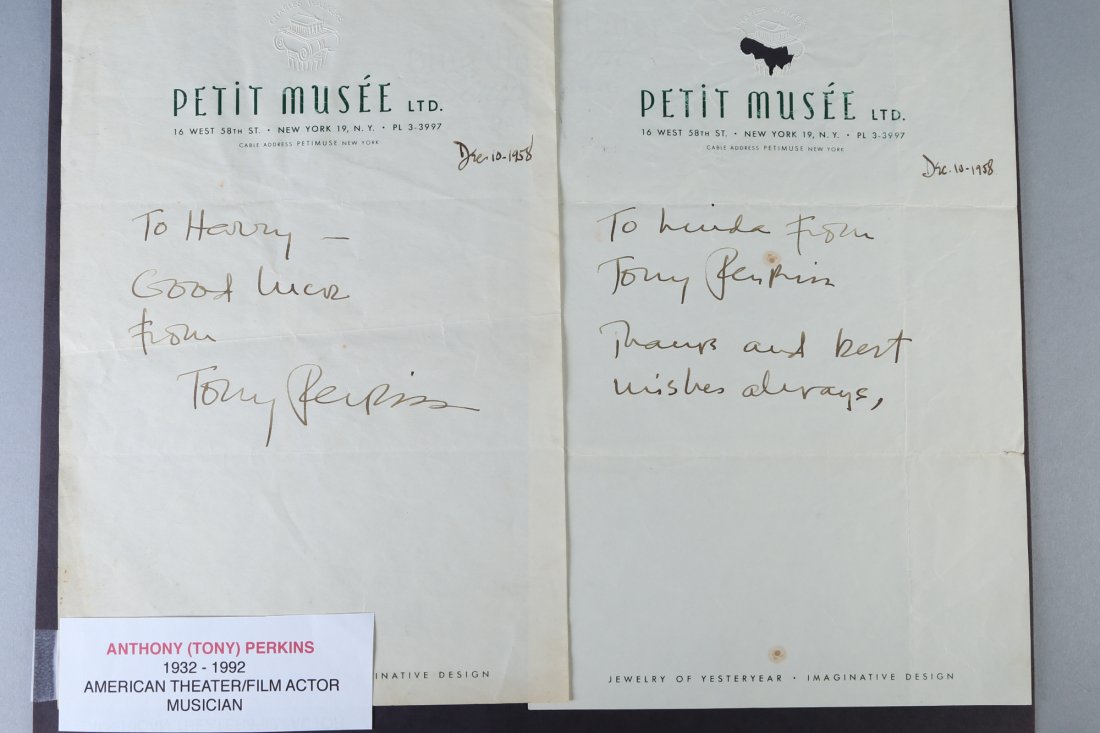 PETIT MUSÉE LTD.
16 WEST 58TH ST. • NEW YORK 19, N.Y. • PL 3-3997
CABLE ADDRESS PETIMUSE NEW YORK
Dec 10-1958
To Harry —
Good luck
from
Tony Perkins
INATIVE DESIGN
ANTHONY (TONY) PERKINS
1932 - 1992
AMERICAN THEATER/FILM ACTOR
MUSICIAN
PETIT MUSÉE LTD.
16 WEST 58TH ST. • NEW YORK 19, N.Y. • PL 3-3997
CABLE ADDRESS PETIMUSE NEW YORK
Dec. 10-1958
To Linda from
Tony Perkins
Thanks and best
wishes always,
JEWELRY OF YESTERYEAR • IMAGINATIVE DESIGN